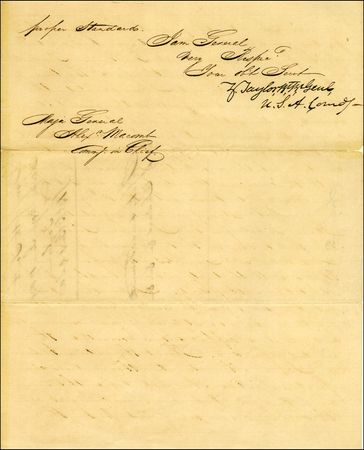 proper Standard.
I am General
Very Respect
Your obt Servt
Z Taylor Genl
U.S.A. Comdg
Major General
Alexr Macomb
Comg in Chief